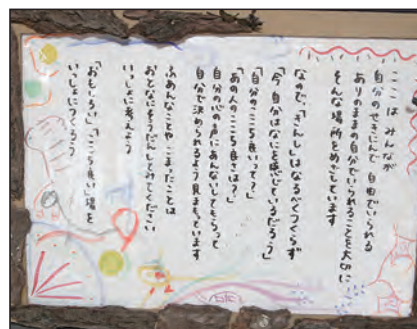 ここは みんなが
自分のせきにんで 自由でいられる
ありのままの自分でいられることを大切に
そんな場所をめざしています
なので、「きんし」はなるべくつくらず
「今、自分はなにを感じているだろう」
「自分のここち良いって?」
「あの人のここち良さは?」
自分の心の声にあんないしてもらって
自分で決められるよう見まもっています
ふあんなことや こまったことは
おとなにそうだんしてみてください
いっしょに考えよう
「おもしろい」「ここち良い」場を
いっしょにつくろう